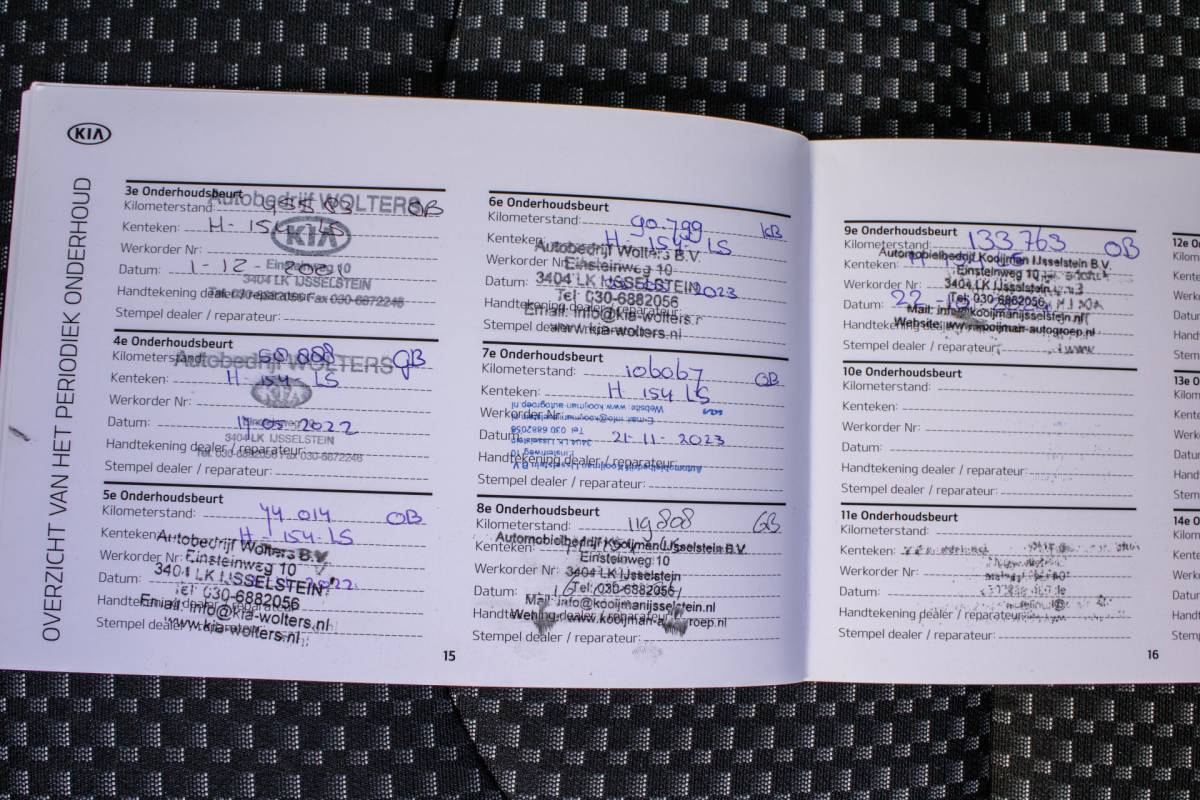 KIA
OVERZICHT VAN HET PERIODIEK ONDERHOUD
3e Onderhoudsbeurt
Autobedrijf WOLTERS
Kilometerstand: OB
Kenteken: H-154-LS
KIA
Werkorder Nr:
Einsteinweg 10
Datum: 1-12-
3404 LK IJSSELSTEIN
Handtekening dealer / reparateur:
Tel. 030-6882056 Fax 030-6872246
Stempel dealer / reparateur:
4e Onderhoudsbeurt
Kilometerstand: 50.888 GB
Autobedrijf WOLTERS
Kenteken: H-154-LS
KIA
Werkorder Nr:
Datum: 05-2022
Einsteinweg 10
3404 LK IJSSELSTEIN
Handtekening dealer / reparateur:
Tel. 030-6882056 Fax 030-6872246
Stempel dealer / reparateur:
5e Onderhoudsbeurt
Kilometerstand: 74 014 OB
Kenteken: H-154-LS
Autobedrijf Wolters B.V.
Werkorder Nr:
Einsteinweg 10
Datum: 2022
3404 LK IJSSELSTEIN
Tel 030-6882056
Handtekening dealer / reparateur:
Email: info@kia-wolters.nl
Stempel dealer / reparateur:
www.kia-wolters.nl
15
6e Onderhoudsbeurt
Kilometerstand: 90.799 KB
Kenteken: H-154-LS
Autobedrijf Wolters B.V.
Werkorder Nr:
Einsteinweg 10
Datum: 2023
3404 LK IJSSELSTEIN
Tel 030-6882056
Handtekening dealer
Email: info@kia-wolters.r
Stempel dealer
www.kia-wolters.nl
7e Onderhoudsbeurt
Kilometerstand: 106067 OB
Kenteken: H 154 LS
Website: www.kooijman-autogroep.nl
Werkorder Nr:
Email: info@kooijmanijsselstein.nl
Tel: 030 6882056
Datum: 21-11-2023
3404 LK IJsselstein
Einsteinweg 10
Handtekening dealer / reparateur:
Automobielbedrijf Kooijman IJsselstein B.V.
Stempel dealer / reparateur:
8e Onderhoudsbeurt
Kilometerstand: 119808 GB
Kenteken:
Automobielbedrijf Kooijman IJsselstein B.V.
Einsteinweg 10
Werkorder Nr:
3404 LK IJsselstein
Datum:
Tel: 030-6882056
Mail: info@kooijmanijsselstein.nl
Stempel dealer / reparateur:
9e Onderhoudsbeurt
Kilometerstand: 133763 OB
Automobielbedrijf Kooijman IJsselstein B.V.
Kenteken:
Einsteinweg 10
Werkorder Nr:
3404 LK IJsselstein
Tel: 030-6882056
Datum: 22-10-
Mail: info@kooijmanijsselstein.nl
Website: www.kooijman-autogroep.nl
Stempel dealer / reparateur:
10e Onderhoudsbeurt
Kilometerstand:
Kenteken:
Werkorder Nr:
Datum:
Handtekening dealer / reparateur:
Stempel dealer / reparateur:
11e Onderhoudsbeurt
Kilometerstand:
Kenteken:
Werkorder Nr:
Datum:
Handtekening dealer / reparateur:
Stempel dealer / reparateur:
16
12e
13e
14e